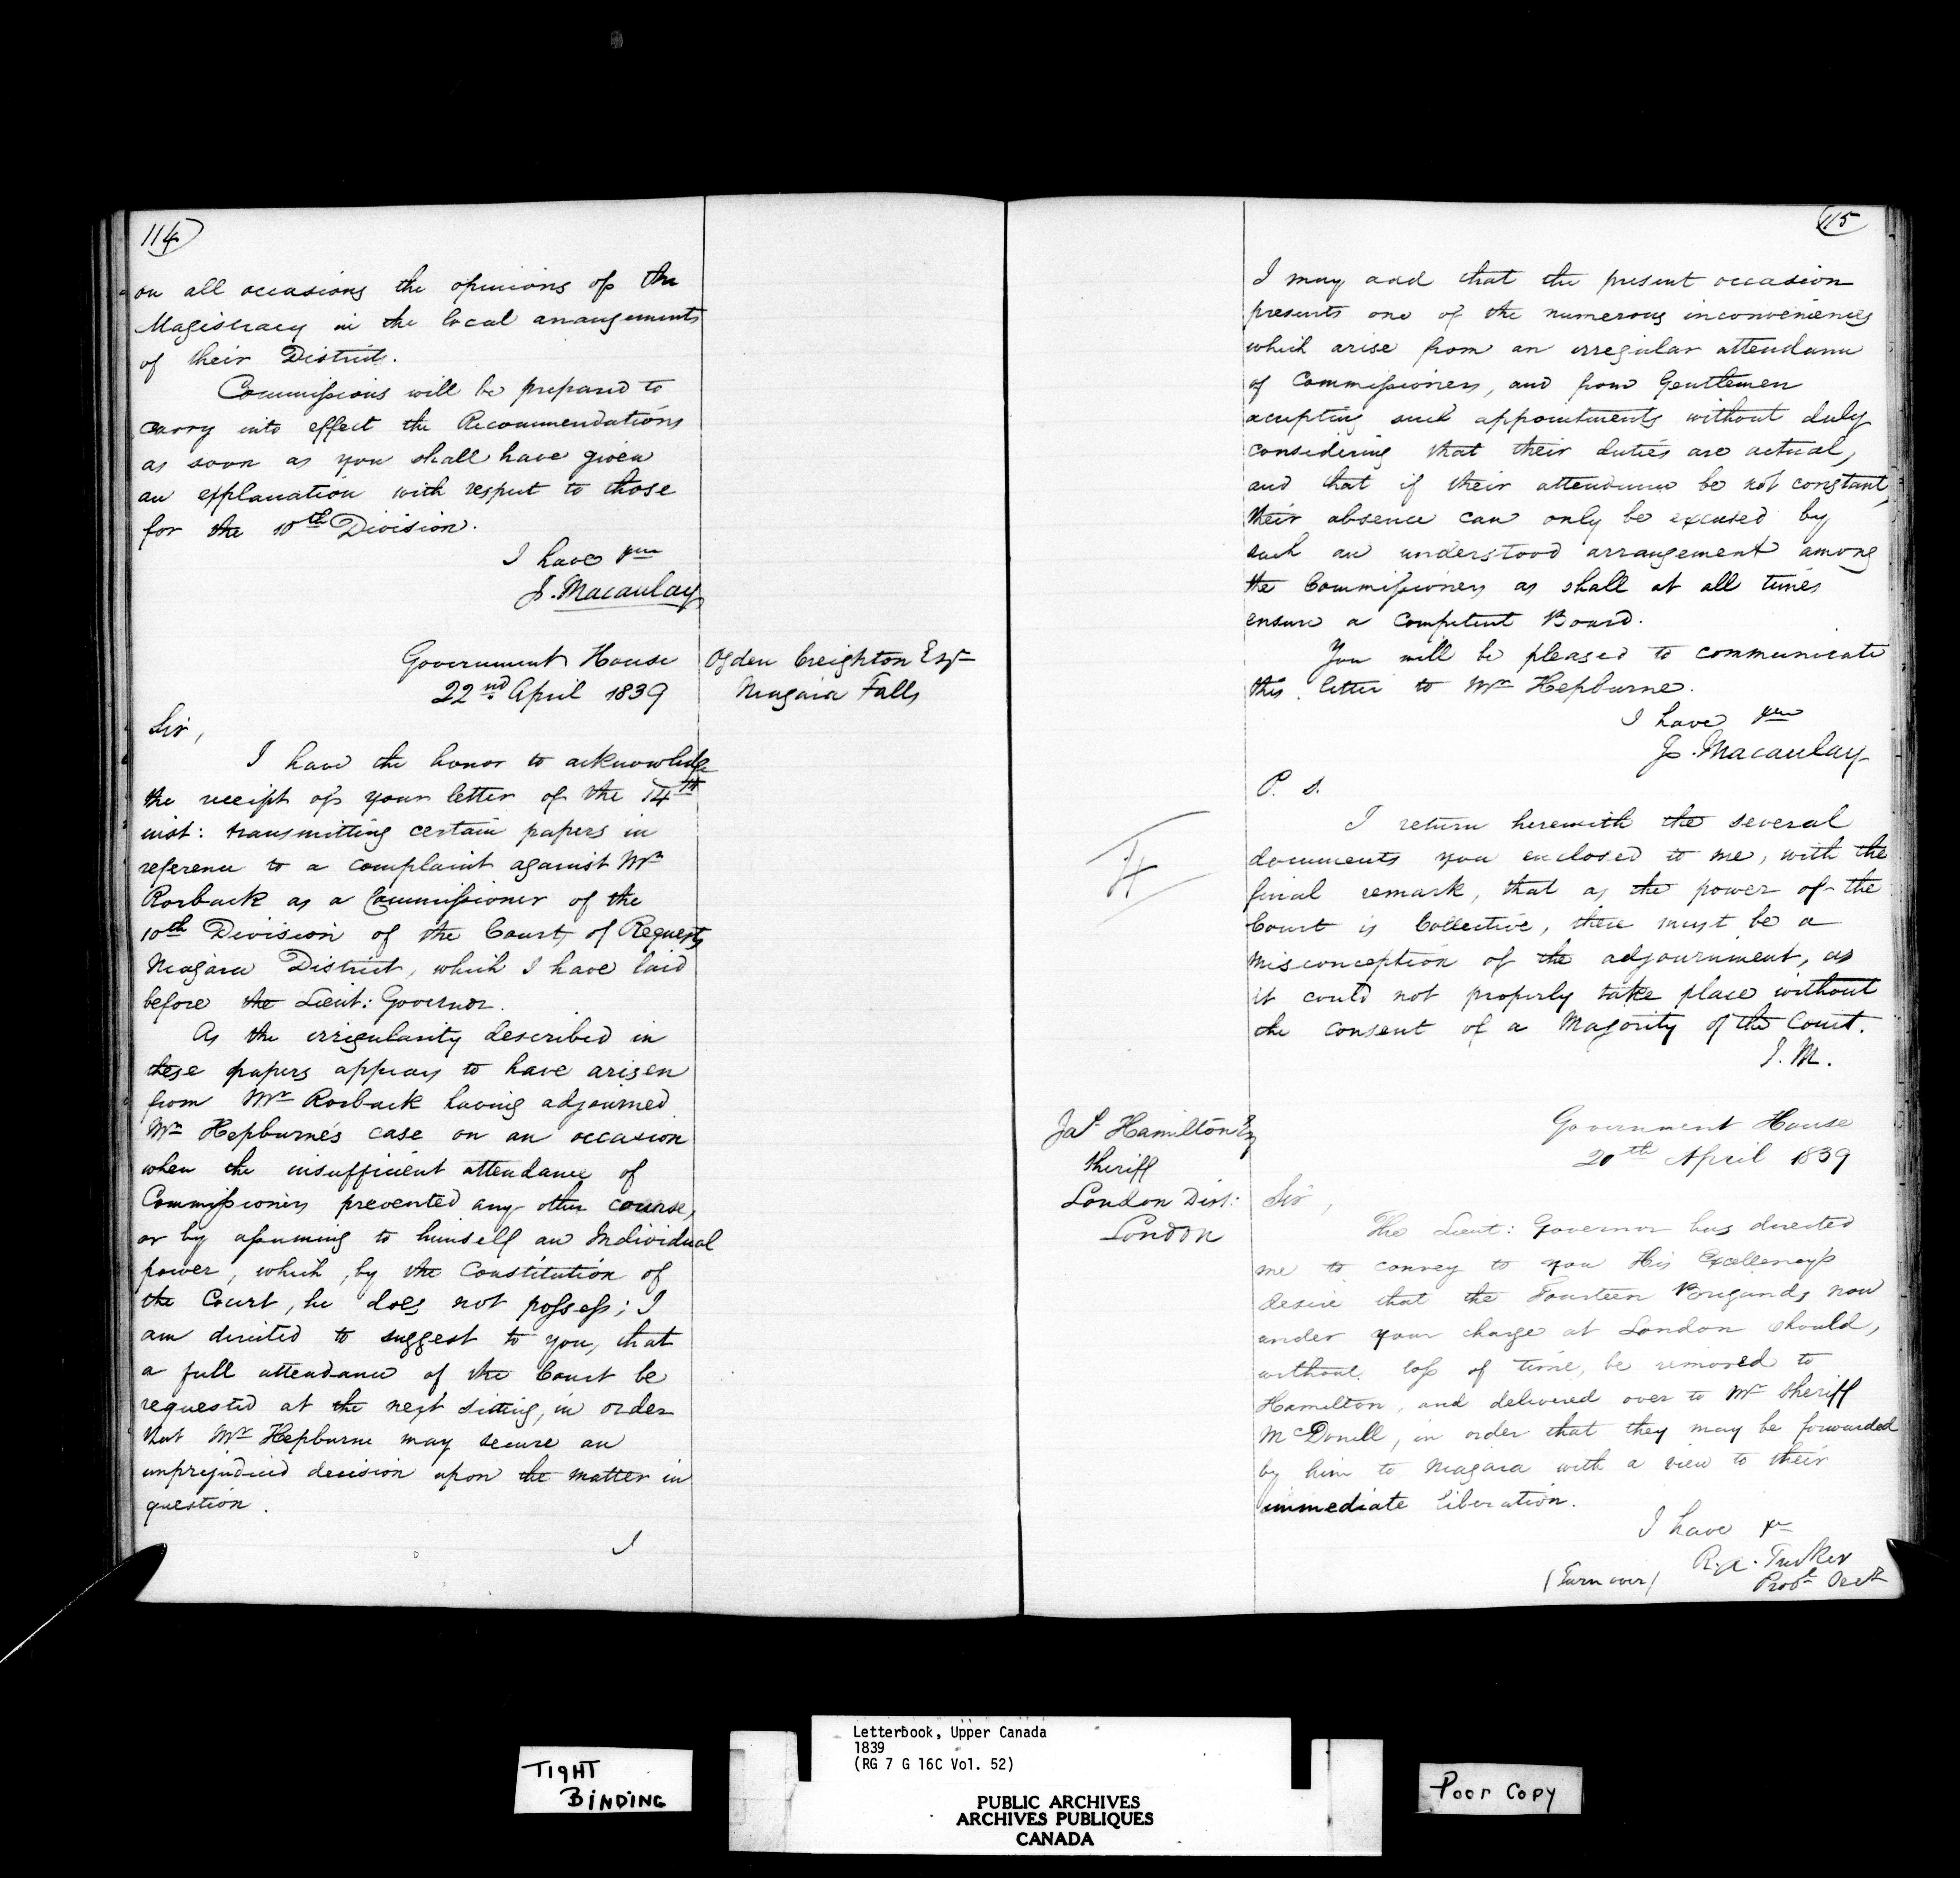 114
on all occasions the opinions of the
Magistracy in the local arrangements
of their District.
Commissions will be prepared to
carry into effect the Recommendations
as soon as you shall have given
an explanation with respect to those
for the 10th Division.
I have
J. Macaulay
Government House
22nd April 1839
Ogden Creighton Esqr
Niagara Falls
Sir,
I have the honor to acknowledge
the receipt of your letter of the 14th
inst: transmitting certain papers in
reference to a complaint against Mr
Rorback as a Commissioner of the
10th Division of the Court of Requests
Niagara District, which I have laid
before the Lieut: Governor.
As the irregularity described in
these papers appears to have arisen
from Mr Rorback having adjourned
Mr Hepburne's case on an occasion
when the insufficient attendance of
Commissioners prevented any other course,
or by assuming to himself an Individual
power, which, by the Constitution of
the Court, he does not possess; I
am directed to suggest to you, that
a full attendance of the Court be
requested at the next sitting, in order
that Mr Hepburne may secure an
unprejudiced decision upon the matter in
question.
I
115
I may add that the present occasion
presents one of the numerous inconveniences
which arise from an irregular attendance
of Commissioners, and from Gentlemen
accepting such appointments without duly
considering that their duties are actual,
and that if their attendance be not constant,
their absence can only be excused by
such an understood arrangement among
the Commissioners as shall at all times
ensure a Competent Board.
You will be pleased to communicate
this letter to Mr Hepburne.
I have
J. Macaulay
P. S.
I return herewith the several
documents you enclosed to me, with the
final remark, that as the power of the
Court is Collective, there must be a
misconception of the adjournment, as
it could not properly take place without
the consent of a Majority of the Court.
J. M.
Jas Hamilton Esq
Sheriff
London Dist:
London
Government House
20th April 1839
Sir,
The Lieut: Governor has directed
me to convey to you His Excellency's
desire that the Fourteen Brigands now
under your charge at London should,
without loss of time, be removed to
Hamilton, and delivered over to Mr Sheriff
McDonell, in order that they may be forwarded
by him to Niagara with a view to their
immediate liberation.
I have
R. A. Tucker
Provl Secy
(Turn over)
Letterbook, Upper Canada
1839
(RG 7 G 16C Vol. 52)
PUBLIC ARCHIVES
ARCHIVES PUBLIQUES
CANADA
TIGHT
BINDING
Poor Copy